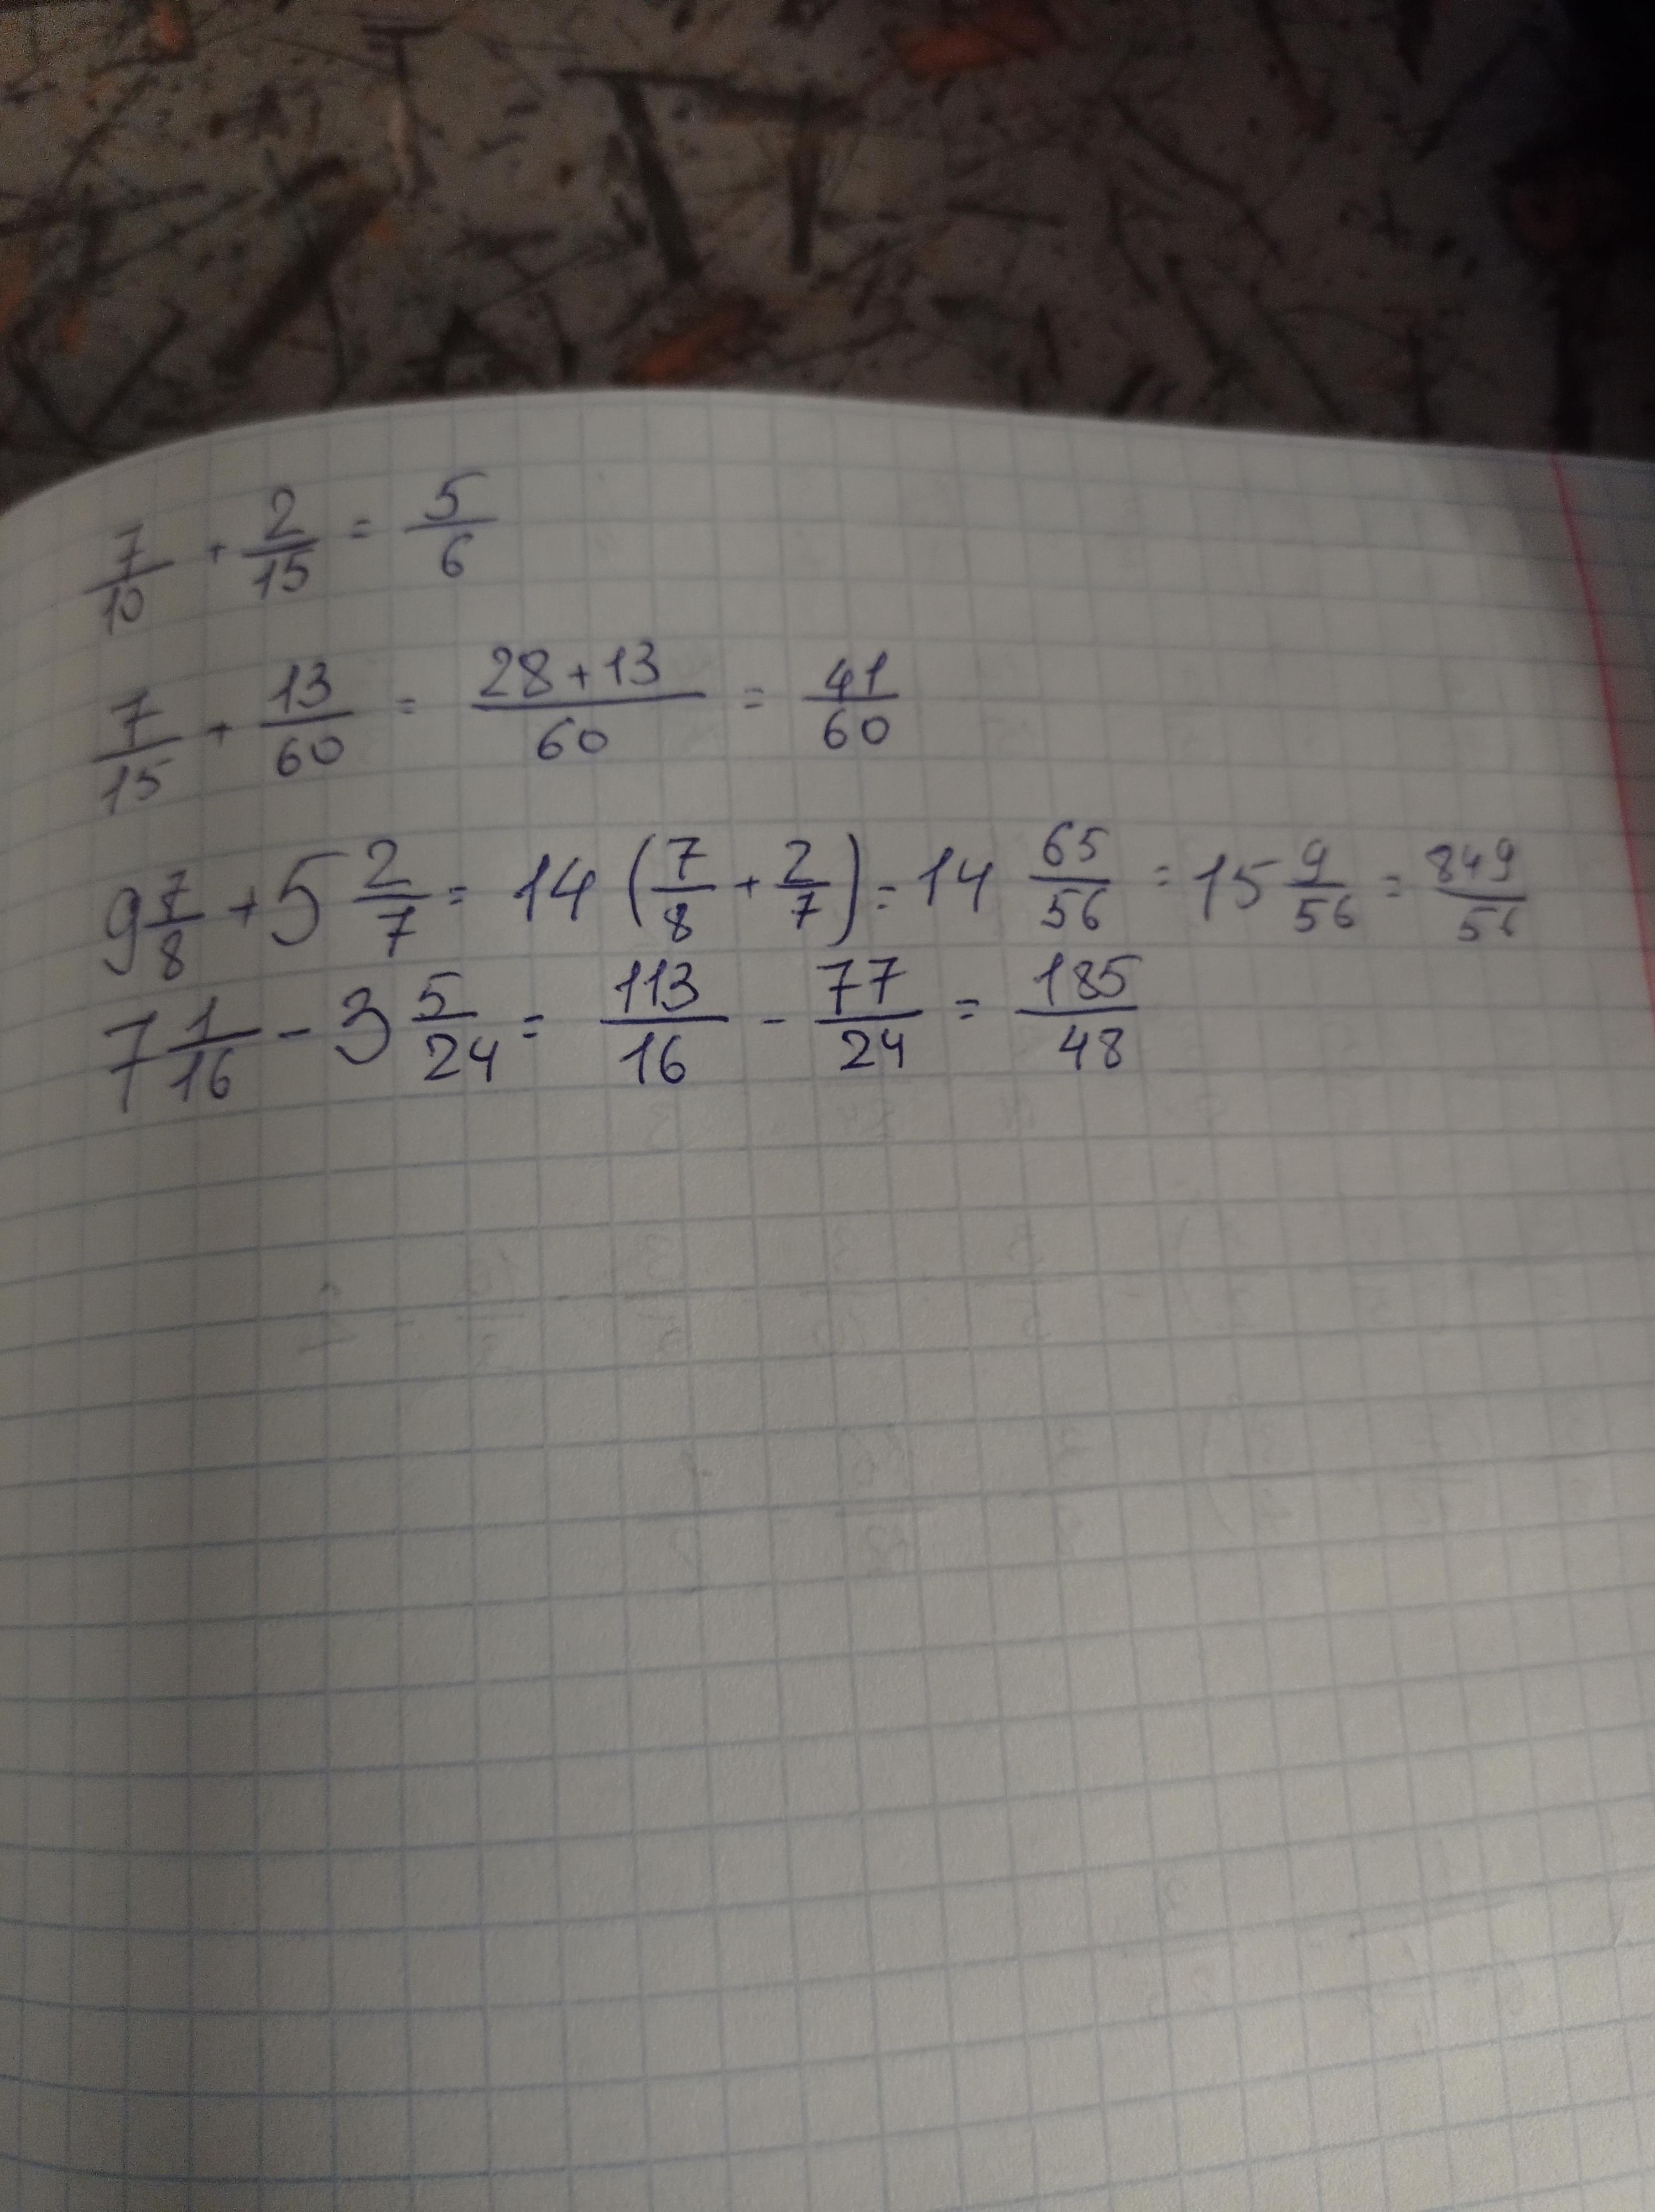 7/10 + 2/15 = 5/6
7/15 + 13/60 = (28+13)/60 = 41/60
9 7/8 + 5 2/7 = 14 (7/8 + 2/7) = 14 65/56 = 15 9/56 = 849/56
7 1/16 - 3 5/24 = 113/16 - 77/24 = 185/48